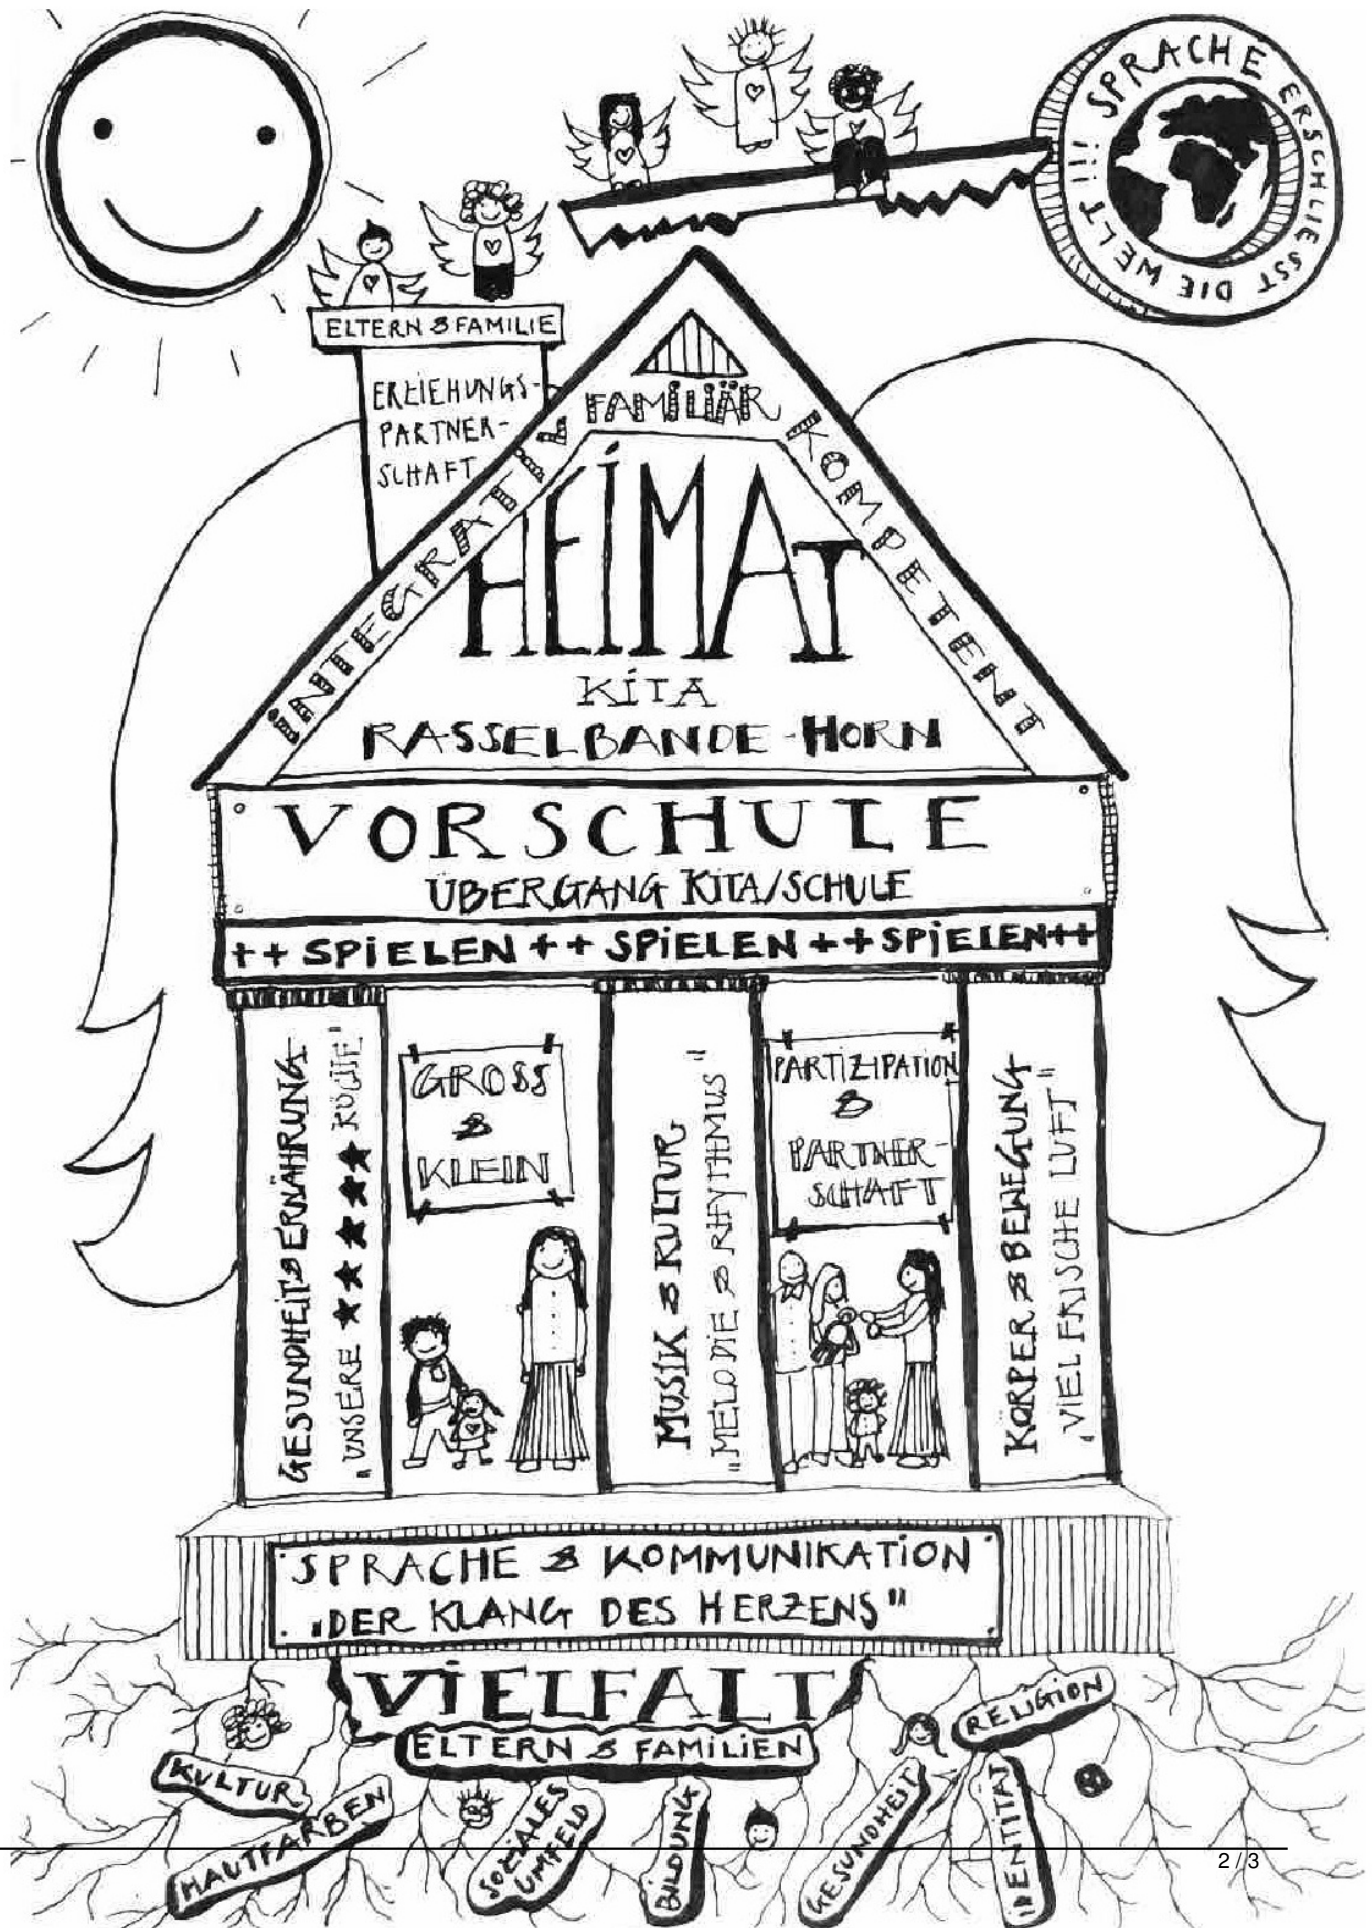 SPRACHE ERSCHLIESST DIE WELT!!!
ELTERN & FAMILIE
ERZIEHUNGS-
PARTNER-
SCHAFT
INTEGRATIV
FAMILIÄR
KOMPETENT
HEIMAT
KITA
RASSELBANDE-HORN
VORSCHULE
ÜBERGANG KITA/SCHULE
++ SPIELEN ++ SPIELEN ++ SPIELEN ++
GESUNDHEIT & ERNÄHRUNG
„UNSERE ★★★★★ KÜCHE"
GROSS
&
KLEIN
MUSIK & KULTUR
„MELODIE & RHYTHMUS"
PARTIZIPATION
&
PARTNER-
SCHAFT
KÖRPER & BEWEGUNG
„VIEL FRISCHE LUFT"
SPRACHE & KOMMUNIKATION
„DER KLANG DES HERZENS"
VIELFALT
ELTERN & FAMILIEN
KULTUR
HAUTFARBEN
SOZIALES
UMFELD
BILDUNG
GESUNDHEIT
IDENTITÄT
RELIGION
2 / 3